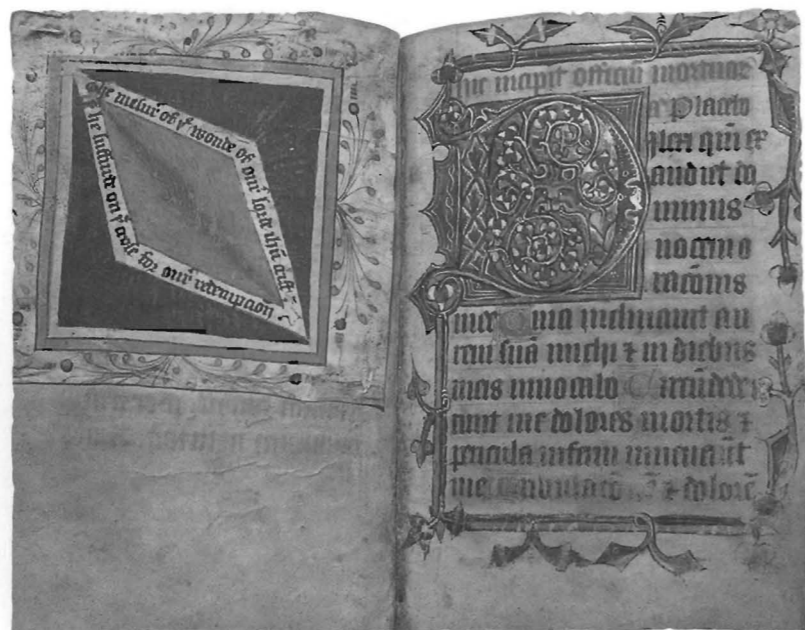 The mesur of þͤ wonde of our lorde ihū crist
þͭ he suffurde on þͤ crosse for our redempcion
hic incipit officiū mortuor
Placebo
Dilexi qm̄ ex
audiet do
minus
uocem o
racōnis
mee Quia inclinauit au
rem suā michi ⁊ in diebus
meis inuocabo Circūdeder
unt me dolores mortis ⁊
pericula inferni inuenerūt
me Tribulacō ⁊ dolorē